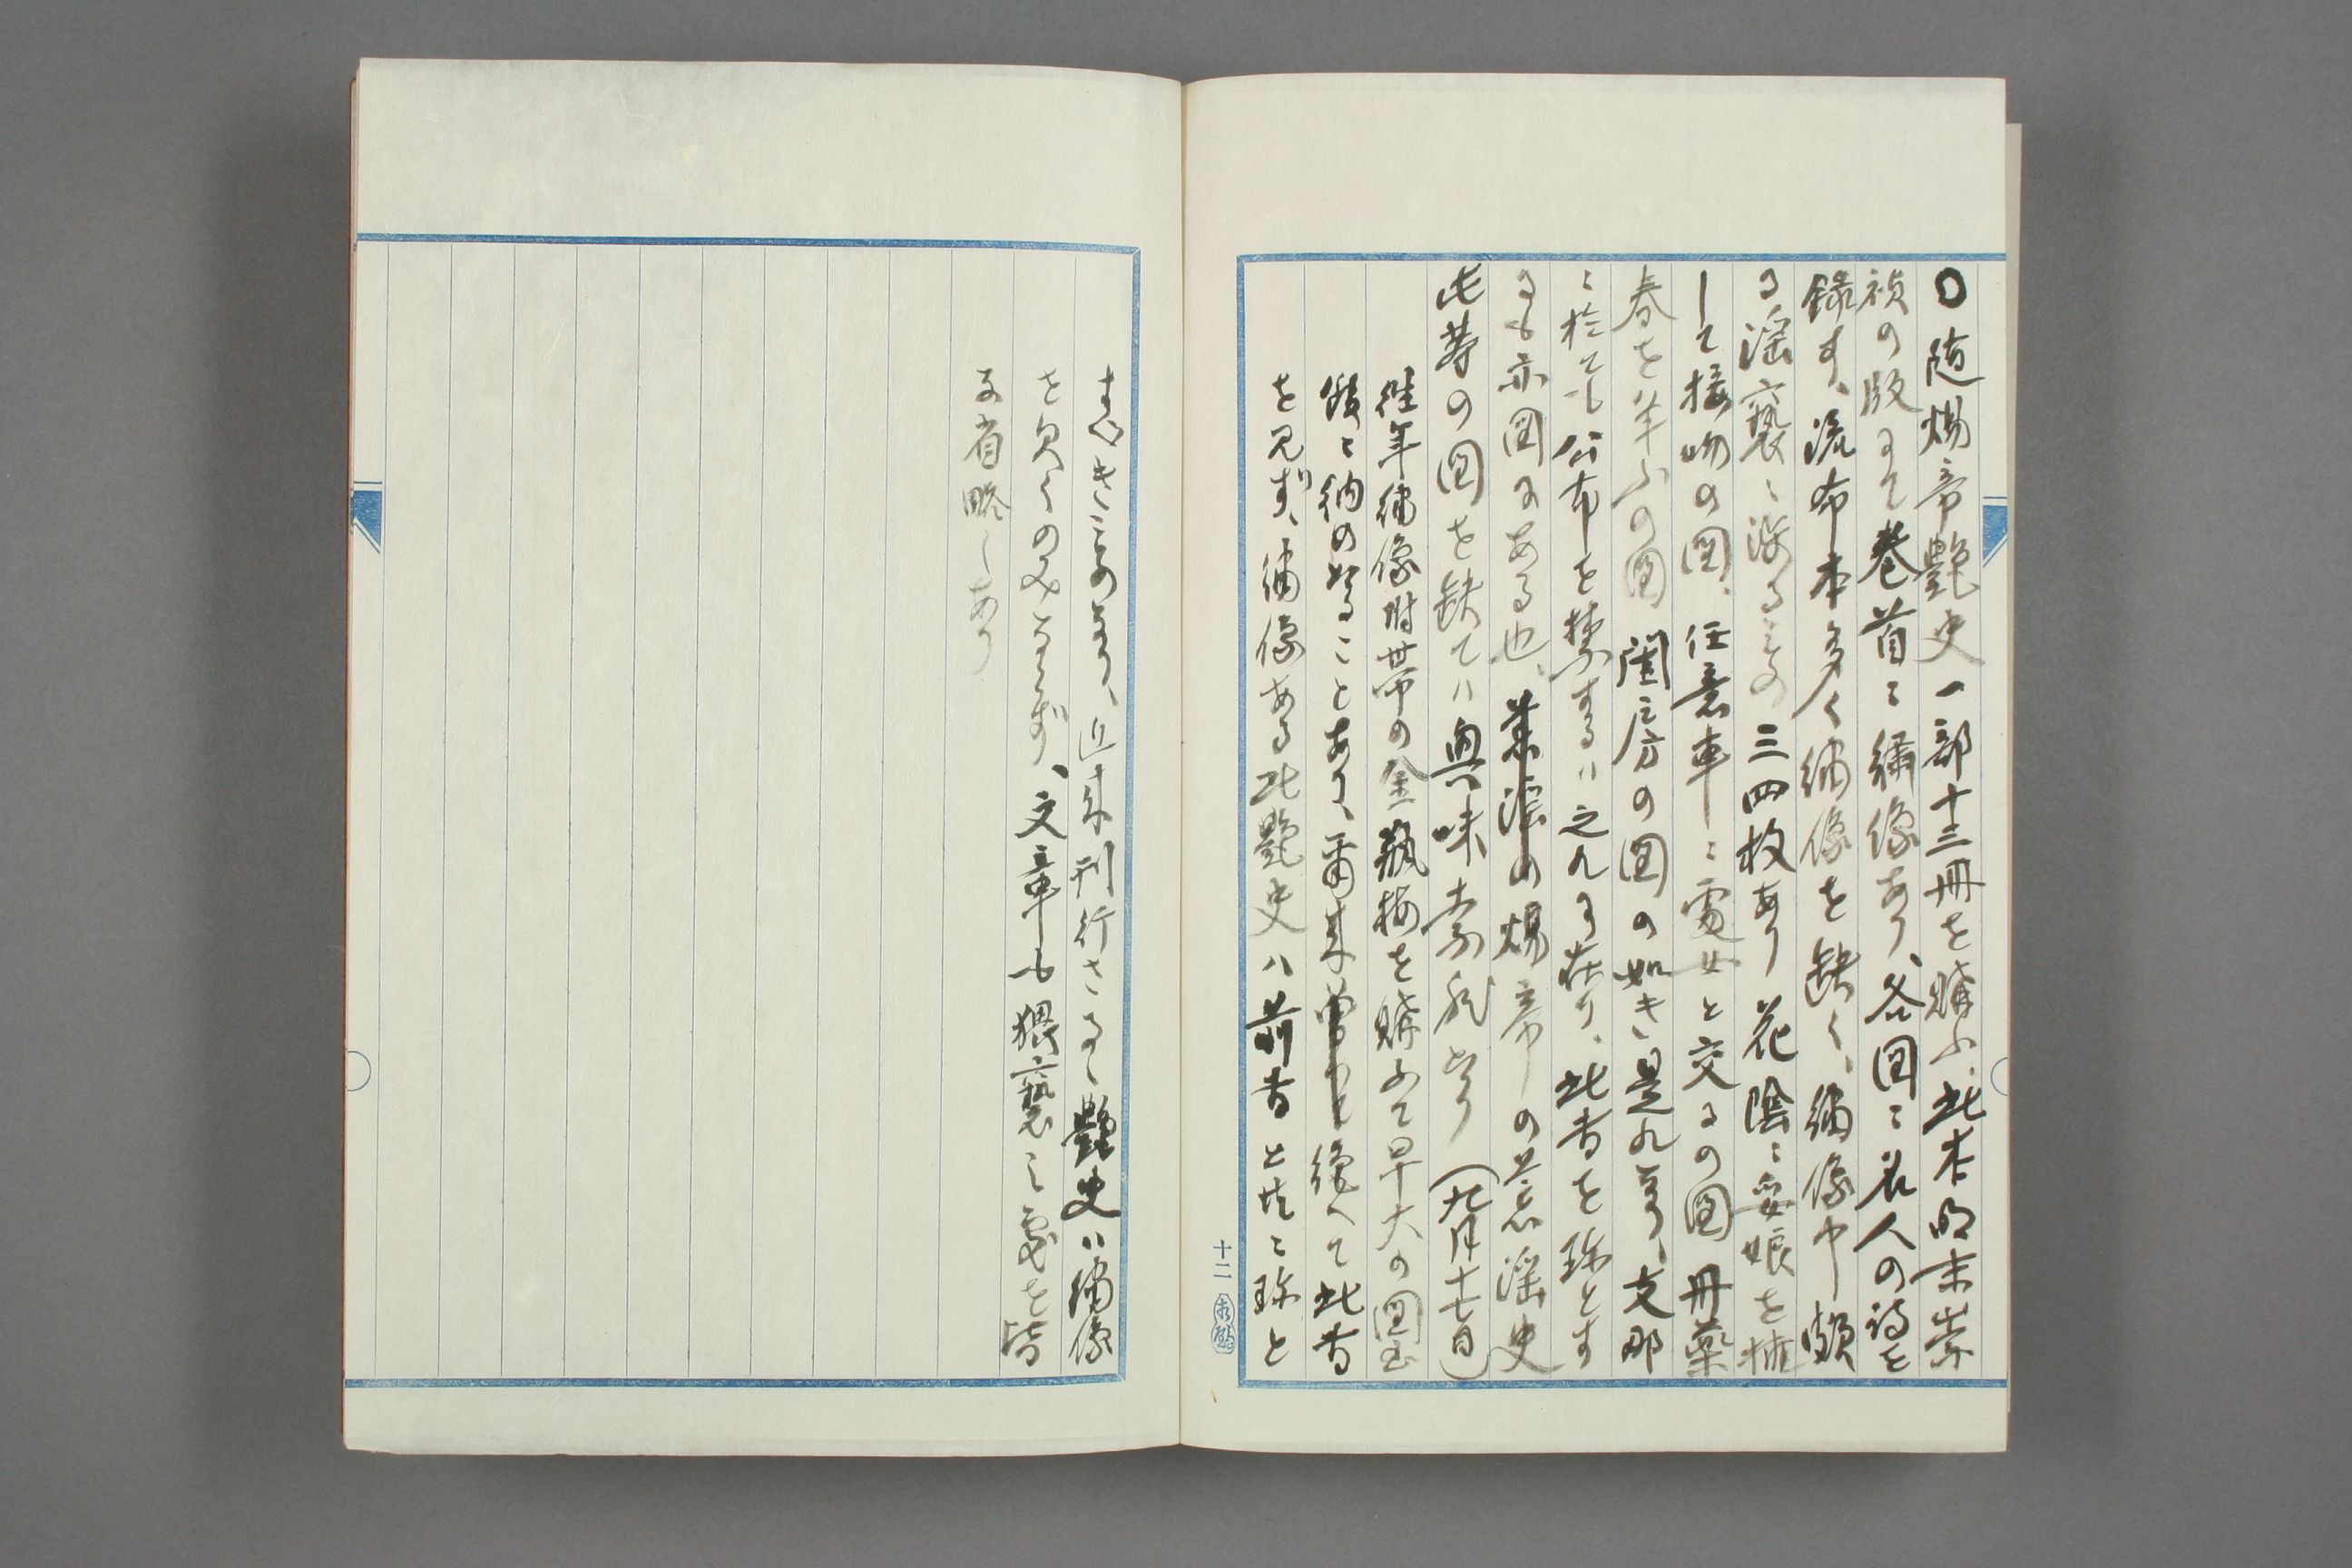 〇随煬帝艶史一部十三冊を購ふ、此本明末崇
禎の版にて巻首ニ繍像あり、各図ニ名人の詩を
録す、流布本多く繍像を缺く、繍像中頗
る淫褻ニ渉るもの三四枚あり花陰ニ妥娘を擁
して接吻の図、任意車ニ処女と交るの図 丹薬
春を半ふの図 閨房の図の如き是れなり、支那
ニ於ても公布を禁するハ之れに在り、此書を珍とす
るも亦図にある也、荒淫の煬帝の荒淫史
此等の図を缺てハ興味索然たり(九月十七日)
往年繍像附帯の金瓶梅を購ふて早大の図書
館ニ納めたることあり、爾来絶へて此書
を見ず、繍像ある此艶史ハ前書と共ニ珍と
すべきものなり、近来刊行さるゝ艶史ハ繍像
を欠くのみならず、文章も猥褻の処を皆
な省略しあり
十二